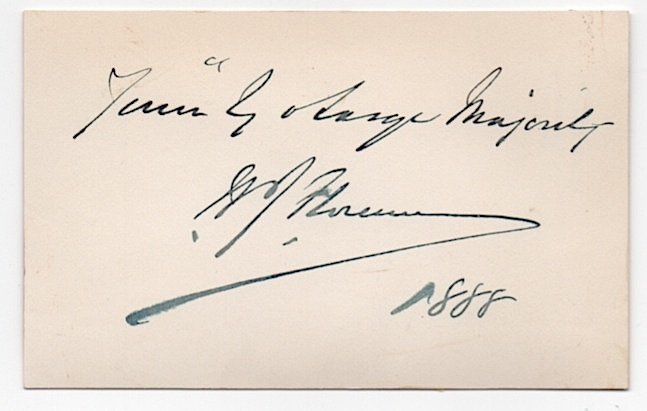 Yours "by a Large Majority
W J Florence
1888